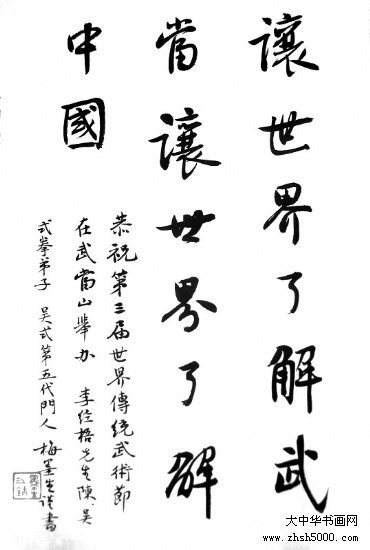 讓世界了解武
當讓世界了解
中國
恭祝第三届世界傳统武術節
在武當山舉办 李经梧先生陳、吴
式拳弟子 吴式第五代門人 梅墨生谨書
大中华书画网
www.zhsh5000.com